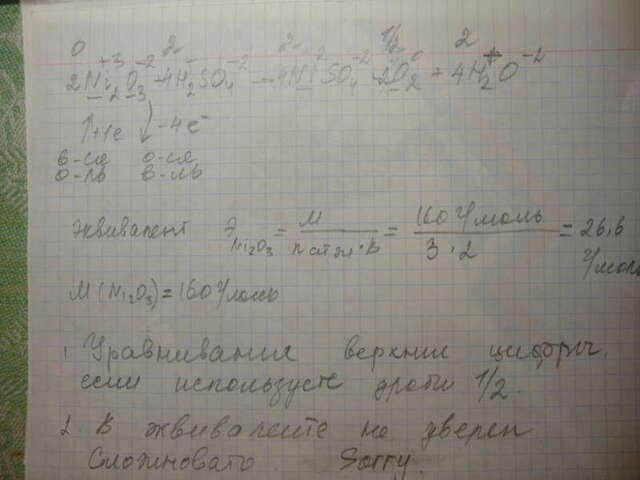 0 2 2 1/2 2
2Ni₂⁺³O₃⁻² 4H₂SO₄⁻² — 4Ni⁺²SO₄⁻² 2O₂⁰ + 4H₂⁺O⁻²
↑+1e ↓-4e⁻
в-ся о-ся
о-ль в-ль
Эквивалент Э Ni₂O₃ = M / n ат эл·В = 160 г/моль / 3·2 = 26,6 г/моль
M(Ni₂O₃)=160 г/моль
1. Уравнивания верхнии цифры,
если используете дроби 1/2.
2. В эквиваленте не уверен
Сложновато. Sorry.